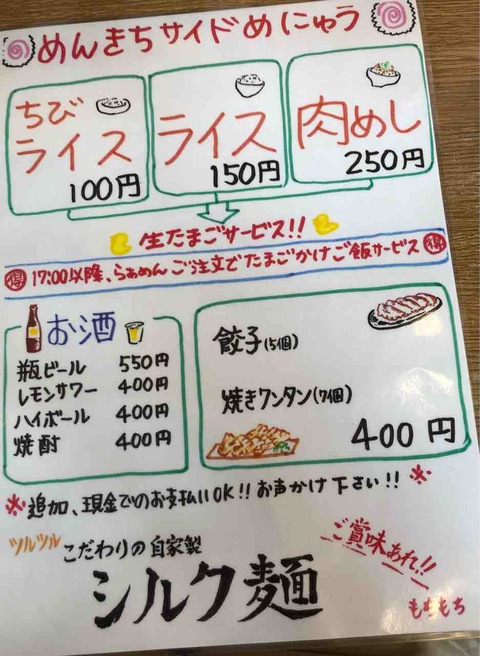 めんきちサイドめにゅう
ちび
ライス
100円
ライス
150円
肉めし
250円
生たまごサービス!!
得 17:00以降、らぁめんご注文でたまごかけご飯サービス 得
お酒
瓶ビール 550円
レモンサワー 400円
ハイボール 400円
焼酎 400円
餃子(5個)
焼きワンタン(7個)
400円
※追加、現金でのお支払いOK!!お声かけ下さい!!※
ツルツル こだわりの自家製
シルク麺
ご賞味あれ!!
もちもち